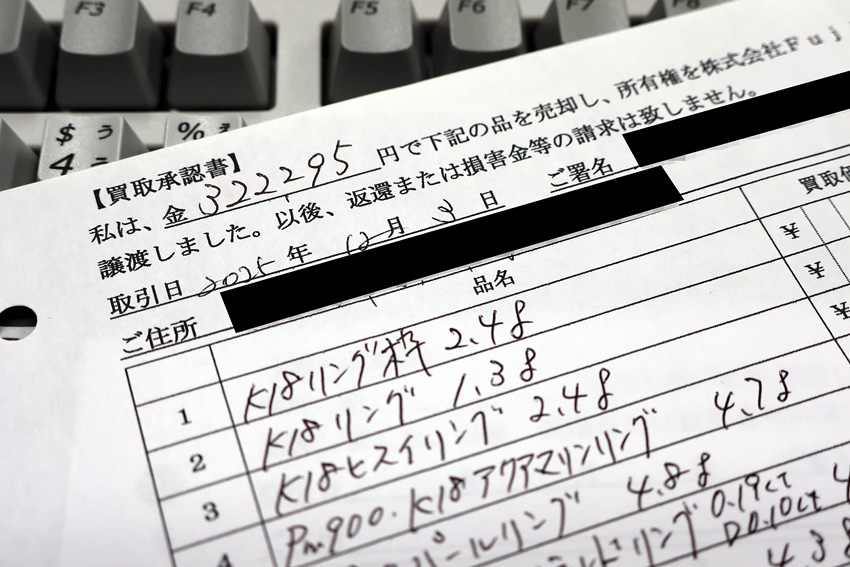 F3 F4 F5 F6 F7 F8
$ う
4
% え
【買取承認書】
私は、金 322295 円で下記の品を売却し、所有権を株式会社Fuj
譲渡しました。以後、返還または損害金等の請求は致しません。
取引日 2025 年 12 月 3 日 ご署名
ご住所
品名 買取価
1 K18リング枠 2.4g ¥
2 K18リング 1.3g ¥
3 K18ヒスイリング 2.4g ¥
4 Pm900・K18アクアマリンリング 4.7g
パールリング 4.8g
リング 0.19ct
D0.10ct
4.3g